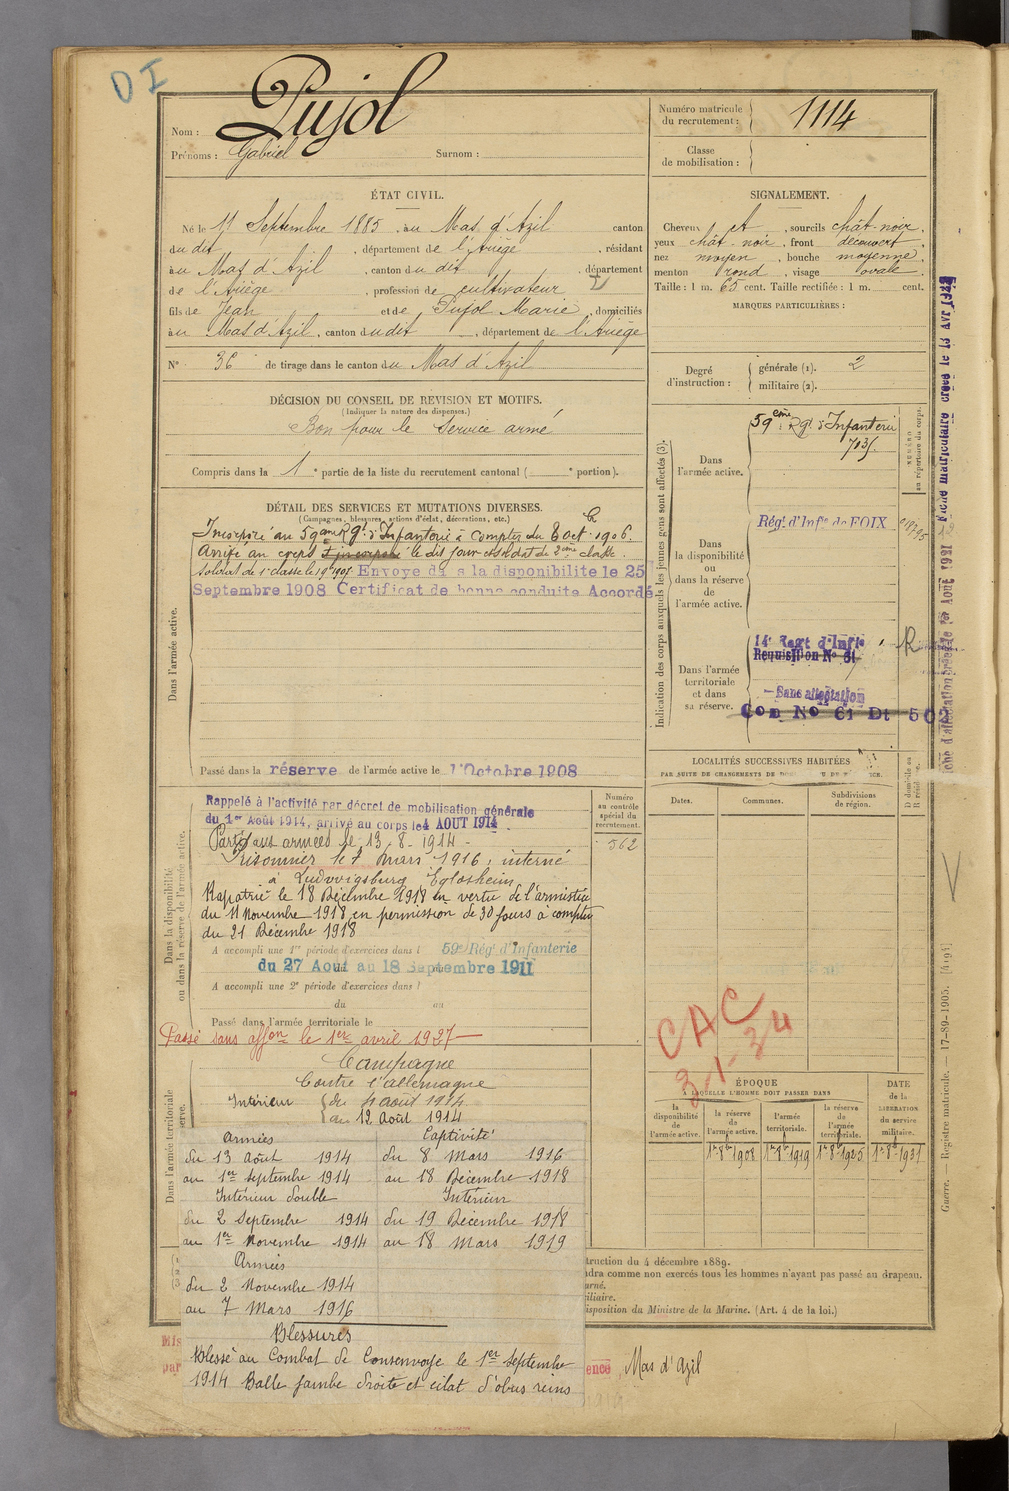 DI
Nom : Pujol
Prénoms : Gabriel Surnom :
Numéro matricule du recrutement : 1114
Classe de mobilisation :
ÉTAT CIVIL.
Né le 11 Septembre 1885, au Mas d'Azil canton
du dit, département de l'Ariège, résidant
au Mas d'Azil, canton du dit, département
de l'Ariège, profession de cultivateur
fils de Jean et de Pujol Marie, domiciliés
au Mas d'Azil, canton du dit, département de l'Ariège
N° 36 de tirage dans le canton du Mas d'Azil
SIGNALEMENT.
Cheveux et, sourcils chât-noir,
yeux chât-noir, front découvert,
nez moyen, bouche moyenne,
menton rond, visage ovale.
Taille : 1 m. 65 cent. Taille rectifiée : 1 m. cent.
MARQUES PARTICULIÈRES :
Degré d'instruction : générale (1). 2
militaire (2).
DÉCISION DU CONSEIL DE REVISION ET MOTIFS.
(Indiquer la nature des dispenses.)
Bon pour le Service armé
Compris dans la 1e partie de la liste du recrutement cantonal ( e portion).
DÉTAIL DES SERVICES ET MUTATIONS DIVERSES.
(Campagnes, blessures, actions d'éclat, décorations, etc.)
Dans l'armée active.
Incorporé au 59ème Rgt d'Infanterie à compter du 8 oct. 1906.
Arrivé au corps et incorporé le dit jour et soldat de 2ème classe.
Soldat de 1e classe le 1907 Envoyé dans la disponibilité le 25
Septembre 1908 Certificat de bonne conduite Accordé
Passé dans la réserve de l'armée active le 1 Octobre 1908
Indication des corps auxquels les jeunes gens sont affectés (3).
NUMÉRO au répertoire du corps.
Dans l'armée active.
59ème Rgt d'Infanterie
7035.
Dans la disponibilité ou dans la réserve de l'armée active.
Régt d'Infie de FOIX
Dans l'armée territoriale et dans sa réserve.
14e Regt d'Infie
Requisition No 61
Sans affectation
Com No 61 Dt 502
Fiche matriculaire créée le 13 Avr 1928
LOCALITÉS SUCCESSIVES HABITÉES
PAR SUITE DE CHANGEMENTS DE
Dates. Communes. Subdivisions de région. D domicile ou R résidence.
Dans la disponibilité ou dans la réserve de l'armée active.
Numéro au contrôle spécial du recrutement.
562
Rappelé à l'activité par décret de mobilisation générale
du 1er Août 1914, arrivé au corps le 4 AOUT 1914
Parti aux armées le 13-8-1914-
Prisonnier le 7 mars 1916, interné
à Ludwigsburg Eglosheim
Rapatrié le 18 Décembre 1918 en vertu de l'armistice
du 11 Novembre 1918 en permission de 30 jours à compter
du 21 Décembre 1918
A accompli une 1re période d'exercices dans l 59e Régt d'Infanterie
du 27 Août au 18 Septembre 1911
A accompli une 2e période d'exercices dans l
du au
Passé dans l'armée territoriale le
Passé sans affon le 1er avril 1927
CAC
3-1-34
V
Dans l'armée territoriale
Campagne
Contre l'allemagne
Intérieur du 4 aout 1914
au 12 Août 1914
Armées
du 13 Août 1914
au 1er Septembre 1914
Intérieur double
du 2 Septembre 1914
au 1er Novembre 1914
Armées
du 2 Novembre 1914
au 7 Mars 1916
Captivité
du 8 Mars 1916
au 18 Décembre 1918
Intérieur
du 19 Décembre 1918
au 18 Mars 1919
Blessures
Blessé au Combat de Consenvoye le 1er Septembre
1914 Balle jambe droite et éclat d'obus reins
ÉPOQUE
À LAQUELLE L'HOMME DOIT PASSER DANS
la disponibilité de l'armée active. la réserve de l'armée active. l'armée territoriale. la réserve de l'armée territoriale. DATE de la LIBÉRATION du service militaire.
1er 8bre 1908 1er 8bre 1919 1er 8bre 1925 1er 8bre 1931
truction du 4 décembre 1889.
dra comme non exercés tous les hommes n'ayant pas passé au drapeau.
urné.
iliaire.
isposition du Ministre de la Marine. (Art. 4 de la loi.)
ence Mas d'Azil
par
Guerre. — Registre matricule. — 17-89-1905. [4194]